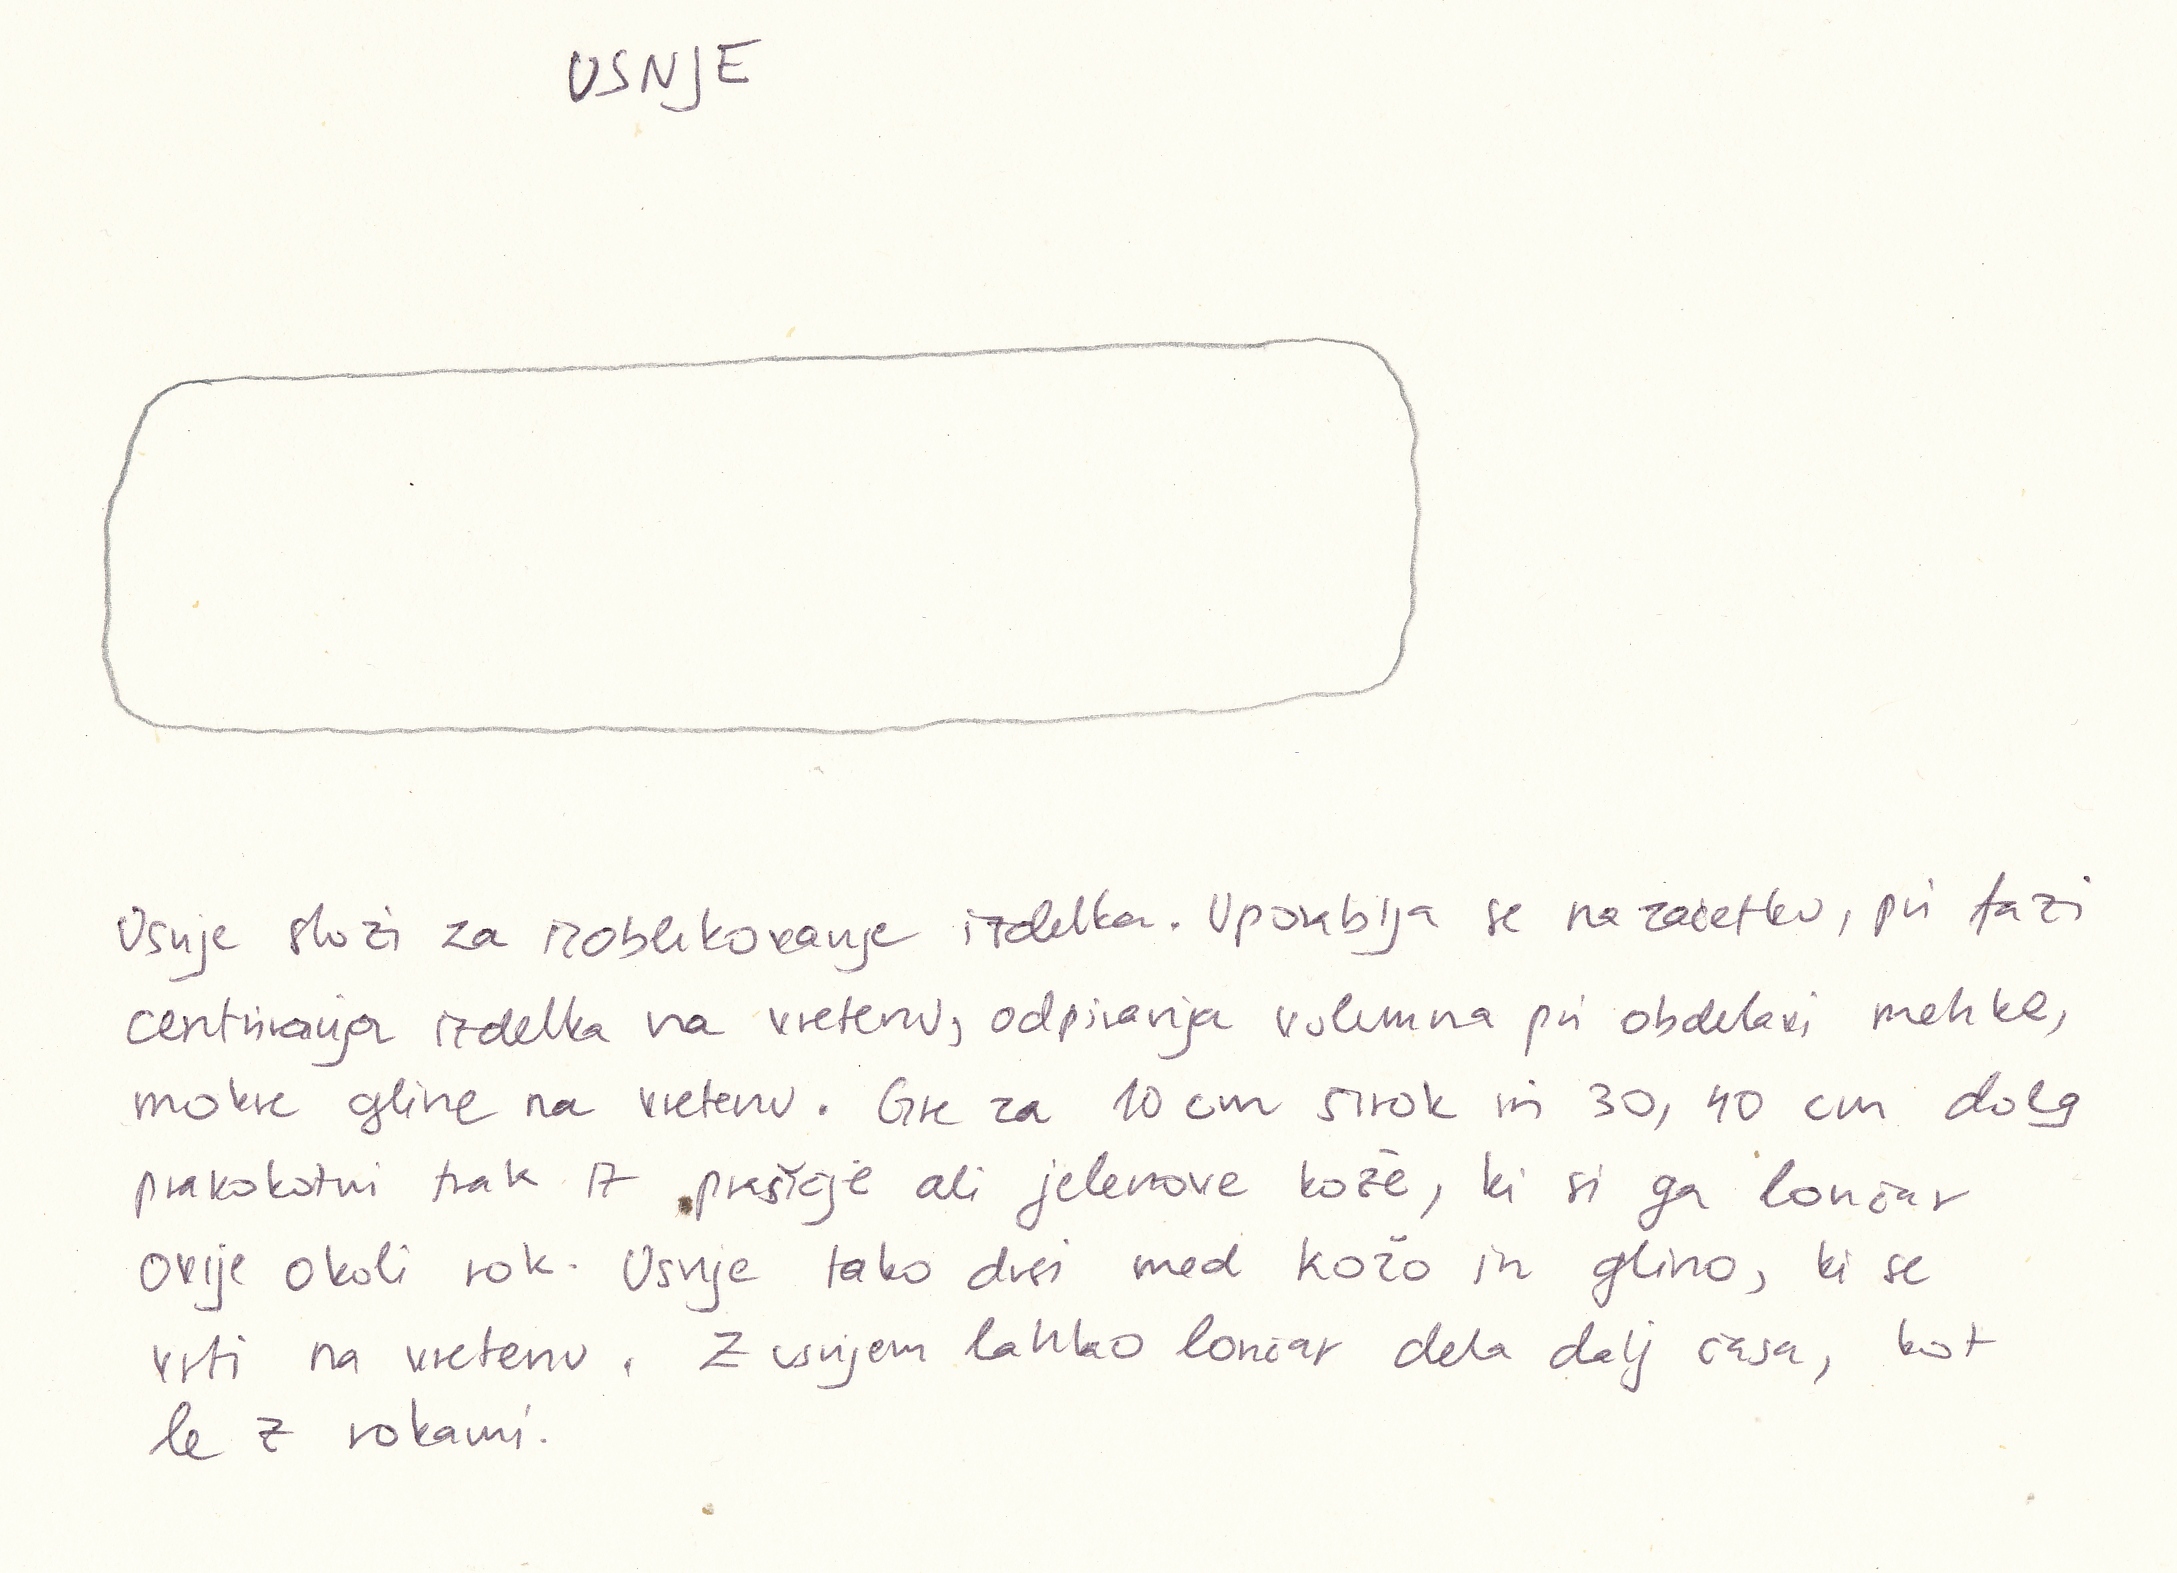 USNJE
Usnje služi za izoblikovanje izdelka. Uporablja se na začetku, pri fazi
centriranja izdelka na vretenu, odpiranja volumna pri obdelavi mehke,
mokre gline na vretenu. Gre za 10 cm širok in 30, 40 cm dolg
pravokotni trak iz prašičje ali jelenove kože, ki si ga lončar
ovije okoli rok. Usnje tako drsi med kožo in glino, ki se
vrti na vretenu. Z usnjem lahko lončar dela dalj časa, kot
le z rokami.